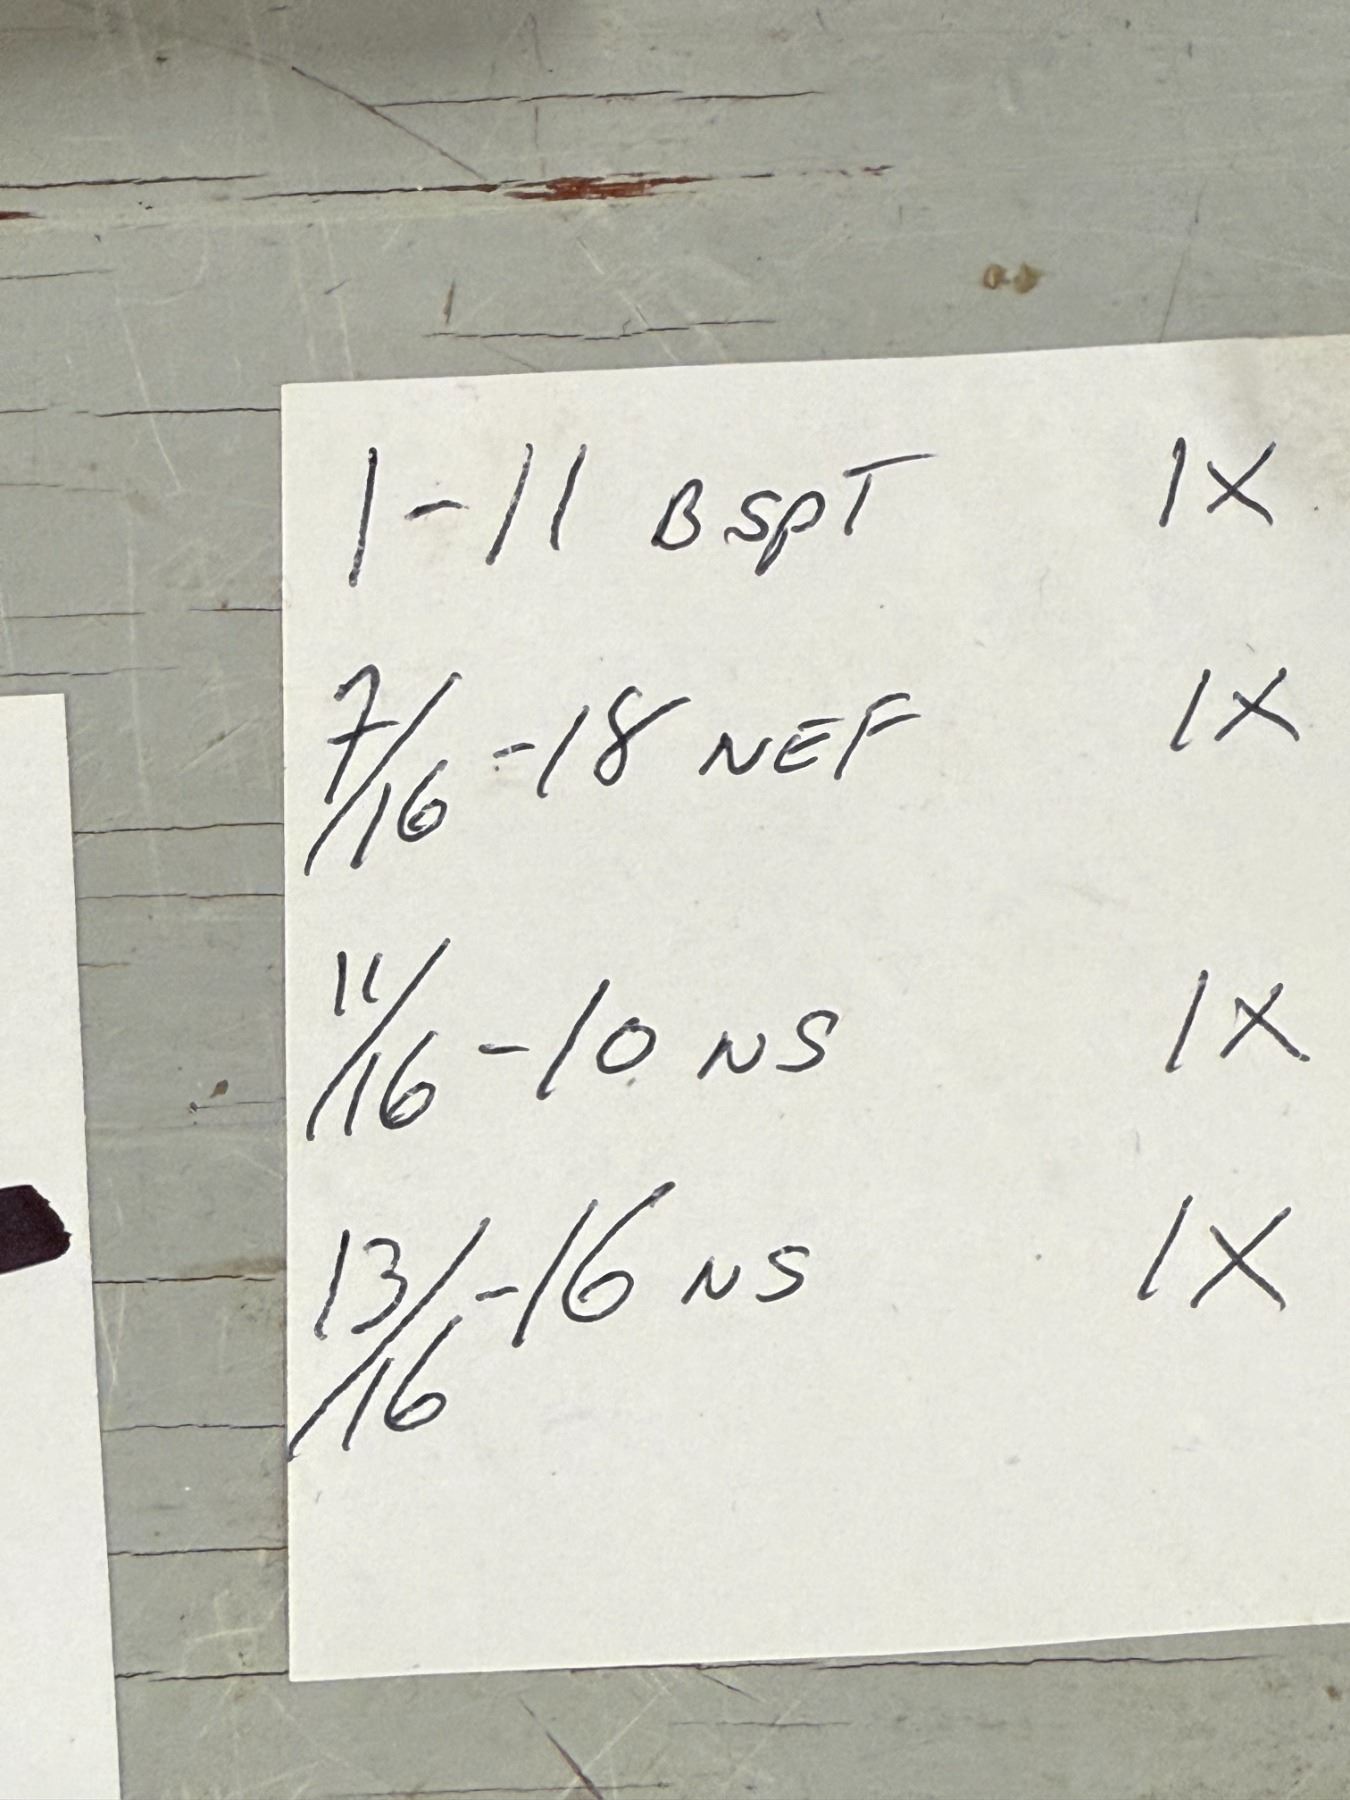 1-11 BSPT 1X
7/16 -18 NEF 1X
11/16 -10 NS 1X
13/16 -16 NS 1X